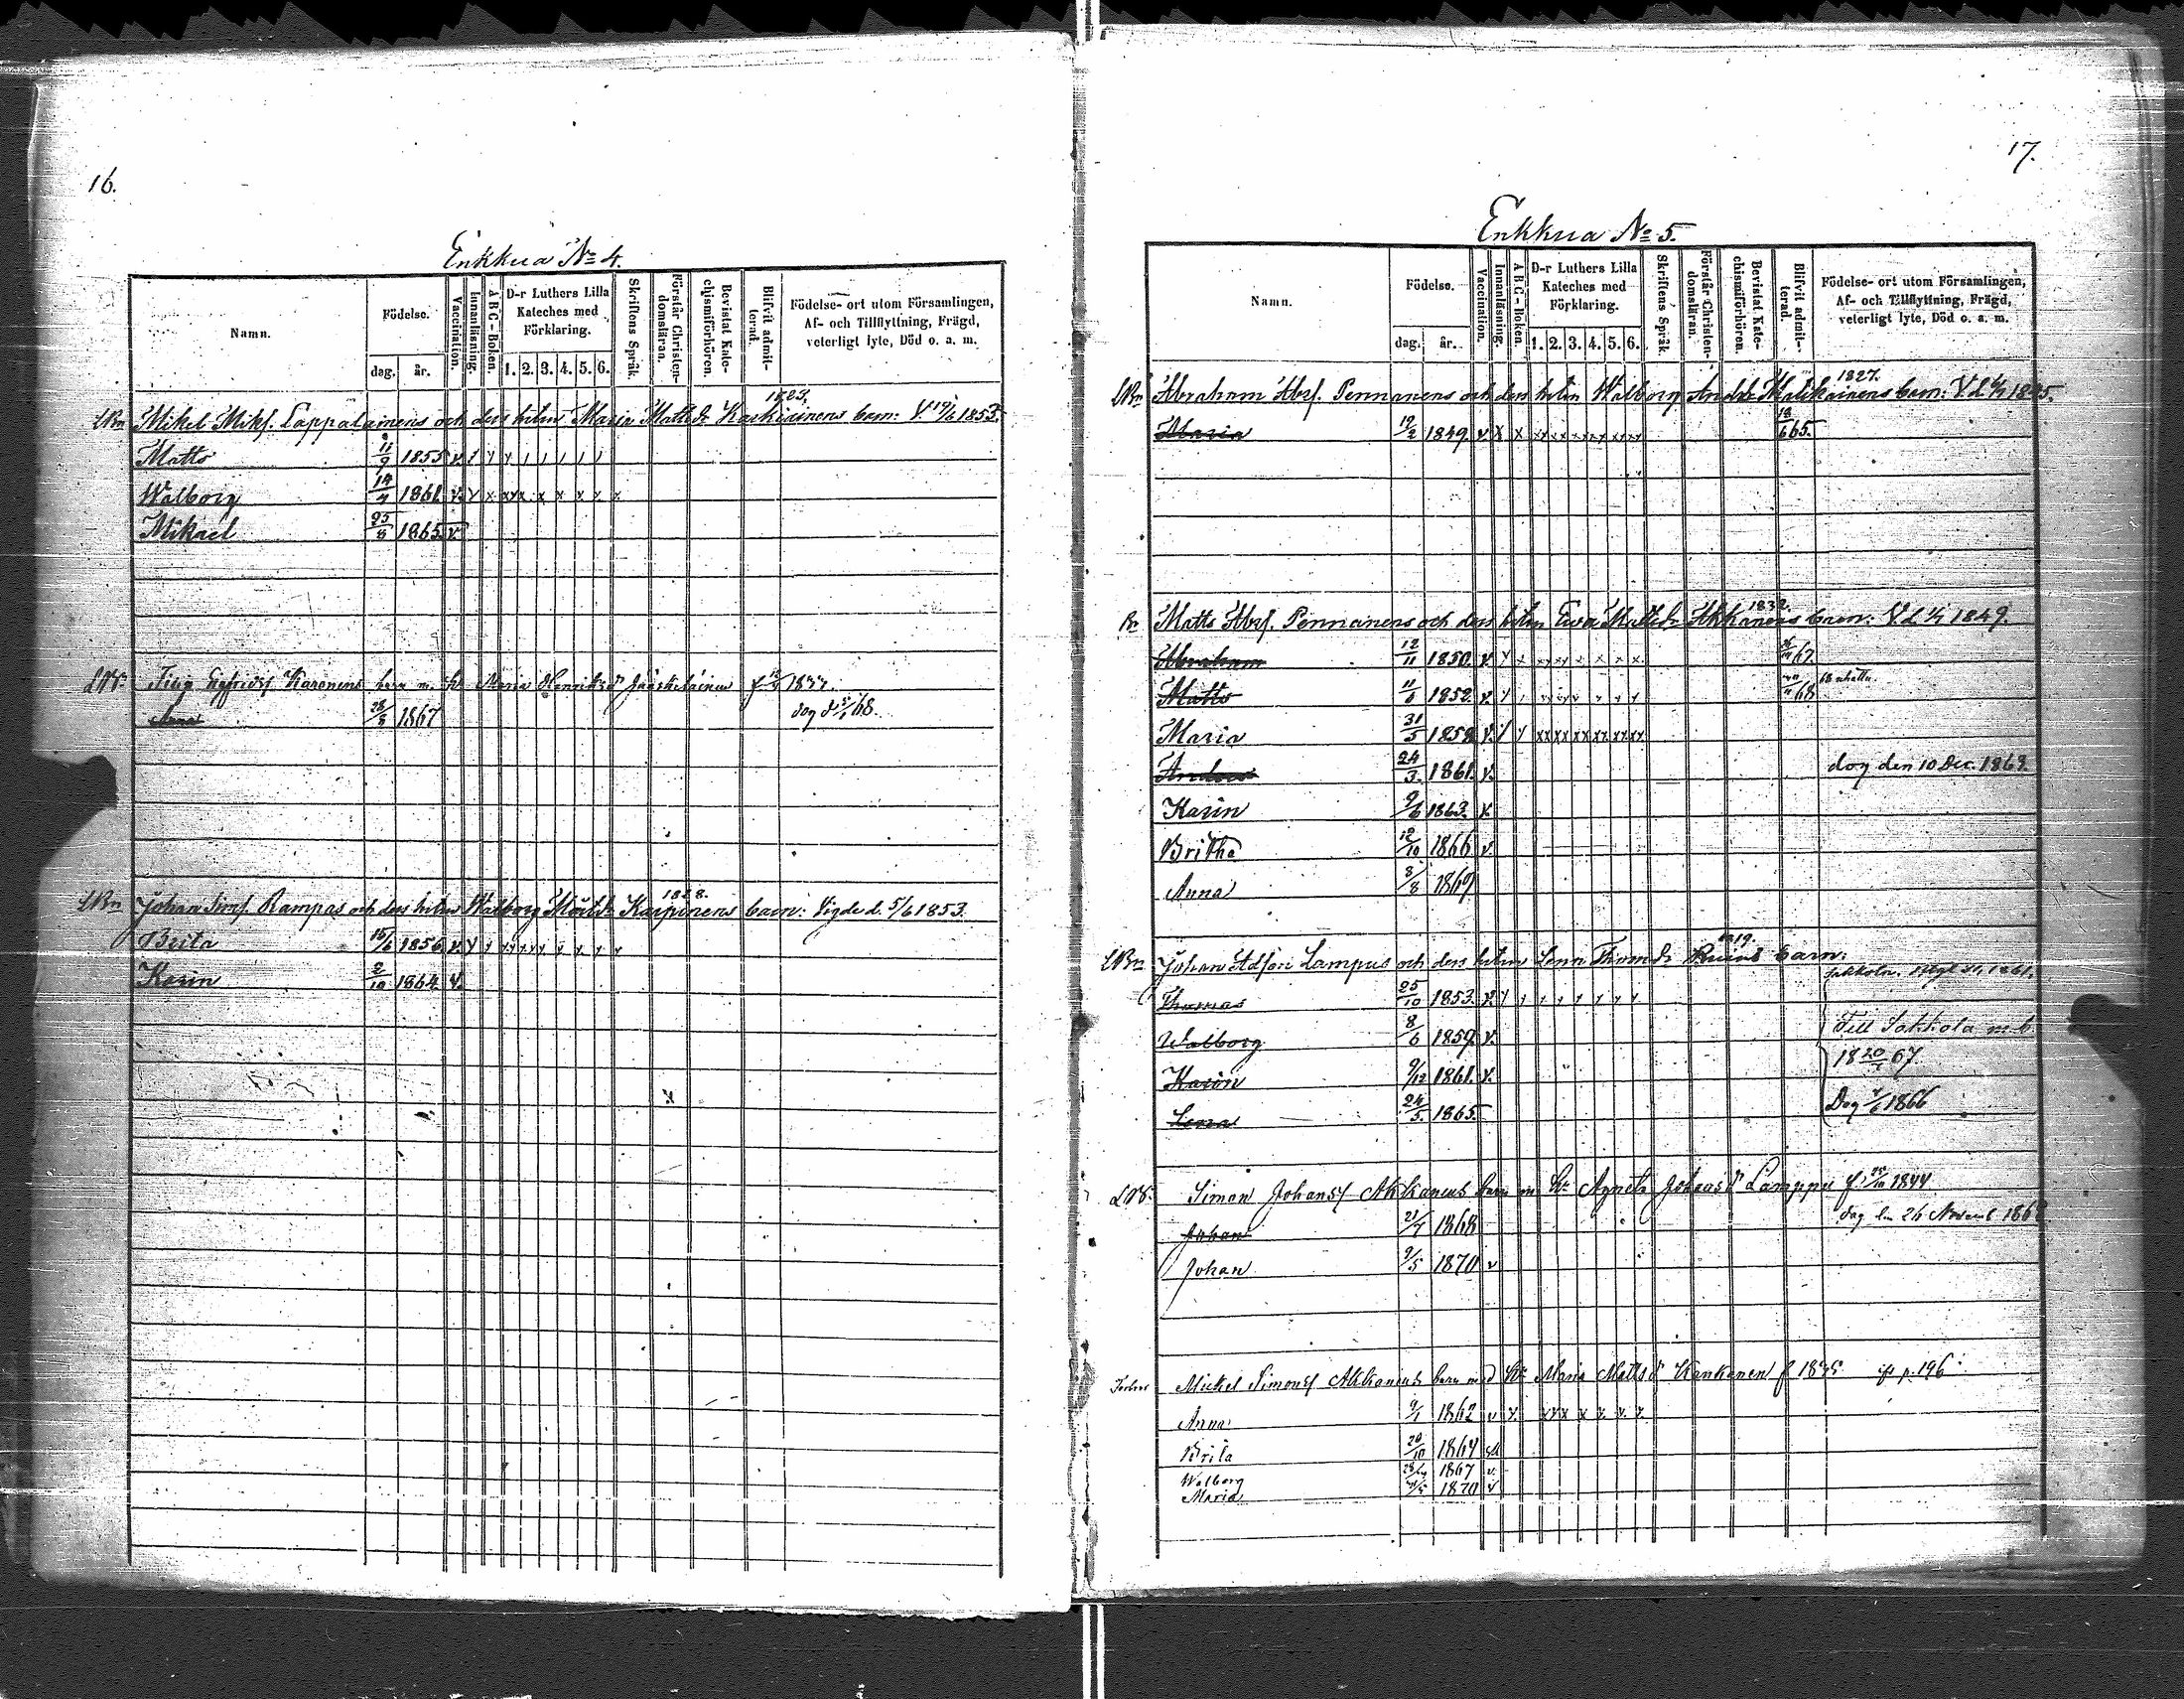 16.
Enkkua No 4.
Namn.
Födelse.
dag. år.
Vaccination.
Innanläsning.
A B C - Boken.
D-r Luthers Lilla Kateches med Förklaring.
1. 2. 3. 4. 5. 6.
Skriftens Språk.
Förstår Christendomsläran.
Bevistat Katechismiförhören.
Blifvit admitterad.
Födelse- ort utom Församlingen, Af- och Tillflyttning, Frägd, veterligt lyte, Död o. a. m.
1825.
LBn Mikel Miks. Lappalainens och dess hstru Maria Matts dr Karkiainens barn: V. 19/6 1853.
Matts 11/9 1855 v
Walborg 14/4 1861 v x x x x x x x x
Mikael 25/8 1865 v
Filip Sigfridss Karonens barn m. h. Maria Henriksdr Jääskeläinen f 12
28/8 1867 dog d 5/1 68.
1828.
LBn Johan Sims. Rampas och dess hstru Walborg Karpinens barn: Vigde d. 5/6 1853.
Brita 15/6 1856 v
Karin 2/10 1864 v.
17.
Enkkua No 5.
Namn.
Födelse.
dag. år.
Vaccination.
Innanläsning.
A B C - Boken.
D-r Luthers Lilla Kateches med Förklaring.
1. 2. 3. 4. 5. 6.
Skriftens Språk.
Förstår Christendomsläran.
Bevistat Katechismiförhören.
Blifvit admitterad.
Födelse- ort utom Församlingen, Af- och Tillflyttning, Frägd, veterligt lyte, Död o. a. m.
1827.
LBn Abraham Abrs. Pennanens och dess hstru Walborg Andsdr Malikainens barn: V. d. 1845.
Maria 19/2 1849 v x x xx xx xx xx xx 18/6 65.
1832.
Bn Matts Abrs. Pennanens och dess hstru Ewa Mattsdr Akkanens barn: V. d. 1/1 1849.
Abraham 12/11 1850 v 67.
Matts 11/6 1852 v 68
Maria 31/5 1858 v. xx xx xx xx xx xx
Anders 24/3 1861 v. dog den 10 Dec. 1863.
Karin 9/6 1863 v.
Britha 12/10 1866 v.
Anna 8/8 1869
1819.
LBn Johan Adss. Lampus och dess hstru Lena Thomsdr barn:
Sakkola. 1861.
Thomas 25/10 1853 v.
Walborg 8/6 1859 v. Till Sakkola m. b.
Karin 9/12 1861 v. 18 20 67.
Lena 24/5 1865 Dog 1866
Simon Johanss Akkanens barn m. h. Agneta Johansdr Lamppu f 1844
Johan 21/7 1868 dog den 26 Novemb 1868
Johan 9/5 1870 v
Mickel Simonss Akkanens barn med h. Maria Mattsdr Kankanen f 1835 p. 196
Anna 9/1 1862 v
Brita 20/10 1864
Walborg 1867 v.
Maria 1870 v